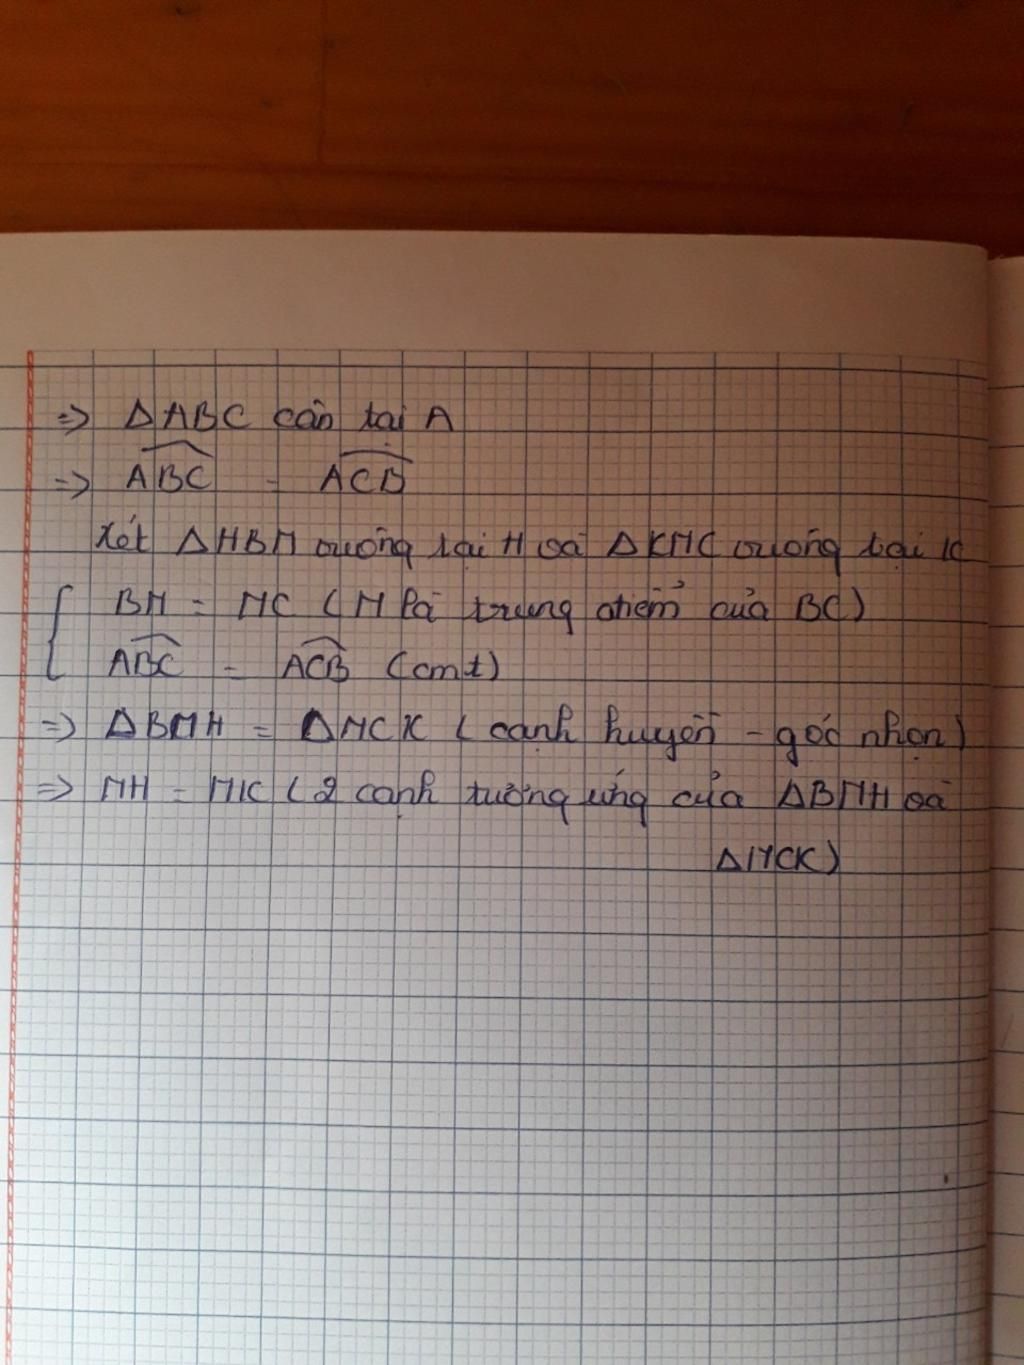 => ΔABC cân tại A
=> \widehat{ABC} = \widehat{ACB}
Xét ΔHBM vuông tại H và ΔKMC vuông tại K
{ BM = MC ( M là trung điểm của BC)
\widehat{ABC} = \widehat{ACB} (cmt)
=> ΔBMH = ΔMCK ( cạnh huyền - góc nhọn)
=> MH = MK ( 2 cạnh tương ứng của ΔBMH và
ΔMCK)